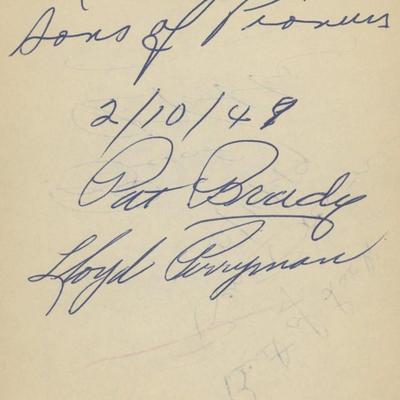 Sons of Pioneers
2/10/49
Pat Brady
Lloyd Perryman